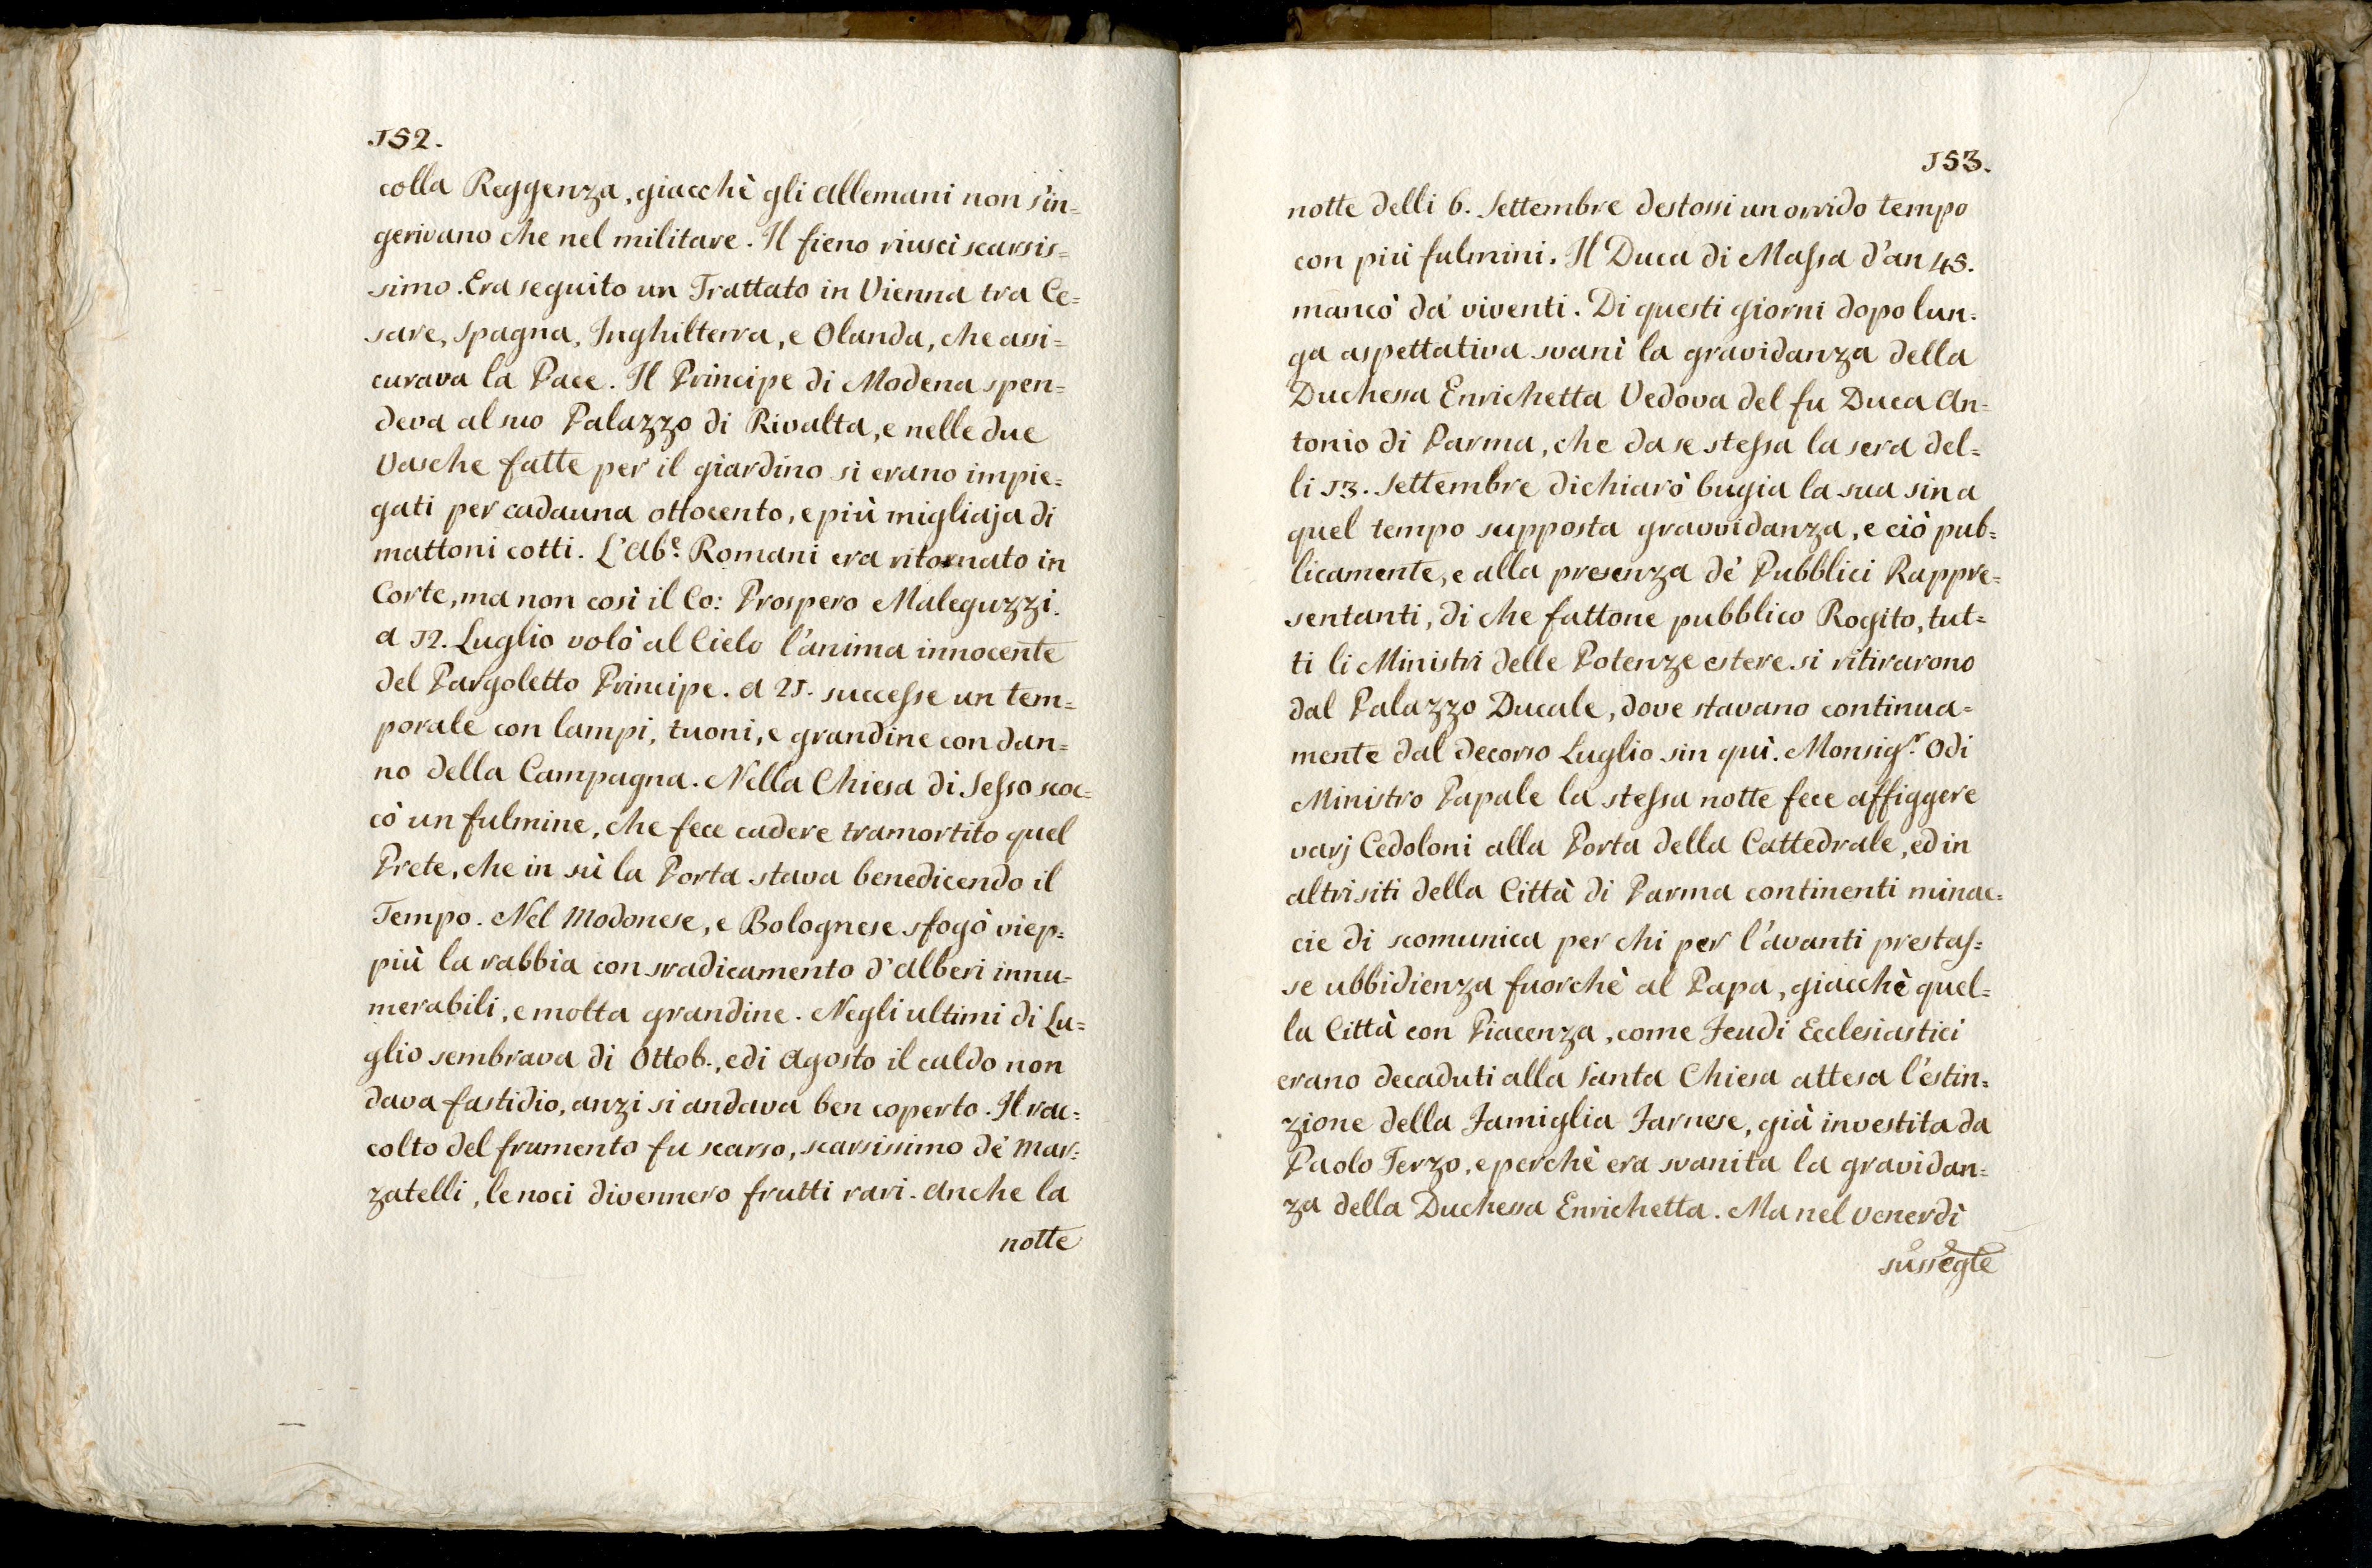 152.
colla Reggenza, giacchè gli Allemani non s'in=
gerivano che nel militare. Il fieno riuscì scarsis=
simo. Era seguito un Trattato in Vienna tra Ce=
sare, Spagna, Inghilterra, e Olanda, che assi=
curava la Pace. Il Principe di Modena spen=
deva al suo Palazzo di Rivalta, e nelle due
Vasche fatte per il giardino si erano impie=
gati per cadauna ottocento, e più migliaja di
mattoni cotti. L'Ab.e Romani era ritornato in
Corte, ma non così il Co: Prospero Maleguzzi.
A 12. Luglio volò al Cielo l'anima innocente
del Pargoletto Principe. A 21. successe un tem=
porale con lampi, tuoni, e grandine con dan=
no della Campagna. Nella Chiesa di Sesso scoc=
cò un fulmine, che fece cadere tramortito quel
Prete, che in sù la Porta stava benedicendo il
Tempo. Nel Modonese, e Bolognese sfogò viep=
più la rabbia con sradicamento d'Alberi innu=
merabili, e molta grandine. Negli ultimi di Lu=
glio sembrava di Ottob., e di Agosto il caldo non
dava fastidio, anzi si andava ben coperto. Il rac=
colto del frumento fu scarso, scarsissimo de' Mar=
zatelli, le noci divennero frutti rari. Anche la
notte
153.
notte delli 6. Settembre destossi un orrido tempo
con più fulmini. Il Duca di Massa d'an 45.
mancò da' viventi. Di questi giorni dopo lun=
ga aspettativa svanì la gravidanza della
Duchessa Enrichetta Vedova del fu Duca An=
tonio di Parma, che da se stessa la sera del=
li 13. Settembre dichiarò bugia la sua sin a
quel tempo supposta gravvidanza, e ciò pub=
licamente, e alla presenza de' Pubblici Rappre=
sentanti, di che fattone pubblico Rogito, tut=
ti li Ministri delle Potenze estere si ritirarono
dal Palazzo Ducale, dove stavano continua=
mente dal decorso Luglio sin quì. Monsig.r Odi
Ministro Papale la stessa notte fece affiggere
varj Cedoloni alla Porta della Cattedrale, ed in
altri siti della Città di Parma continenti minac=
cie di scomunica per chi per l'avanti prestas=
se ubbidienza fuorchè al Papa, giacchè quel=
la Città con Piacenza, come Feudi Ecclesiastici
erano decaduti alla Santa Chiesa attesa l'estin=
zione della Famiglia Farnese, già investita da
Paolo Terzo, e perchè era svanita la gravidan=
za della Duchessa Enrichetta. Ma nel Venerdì
sussegte